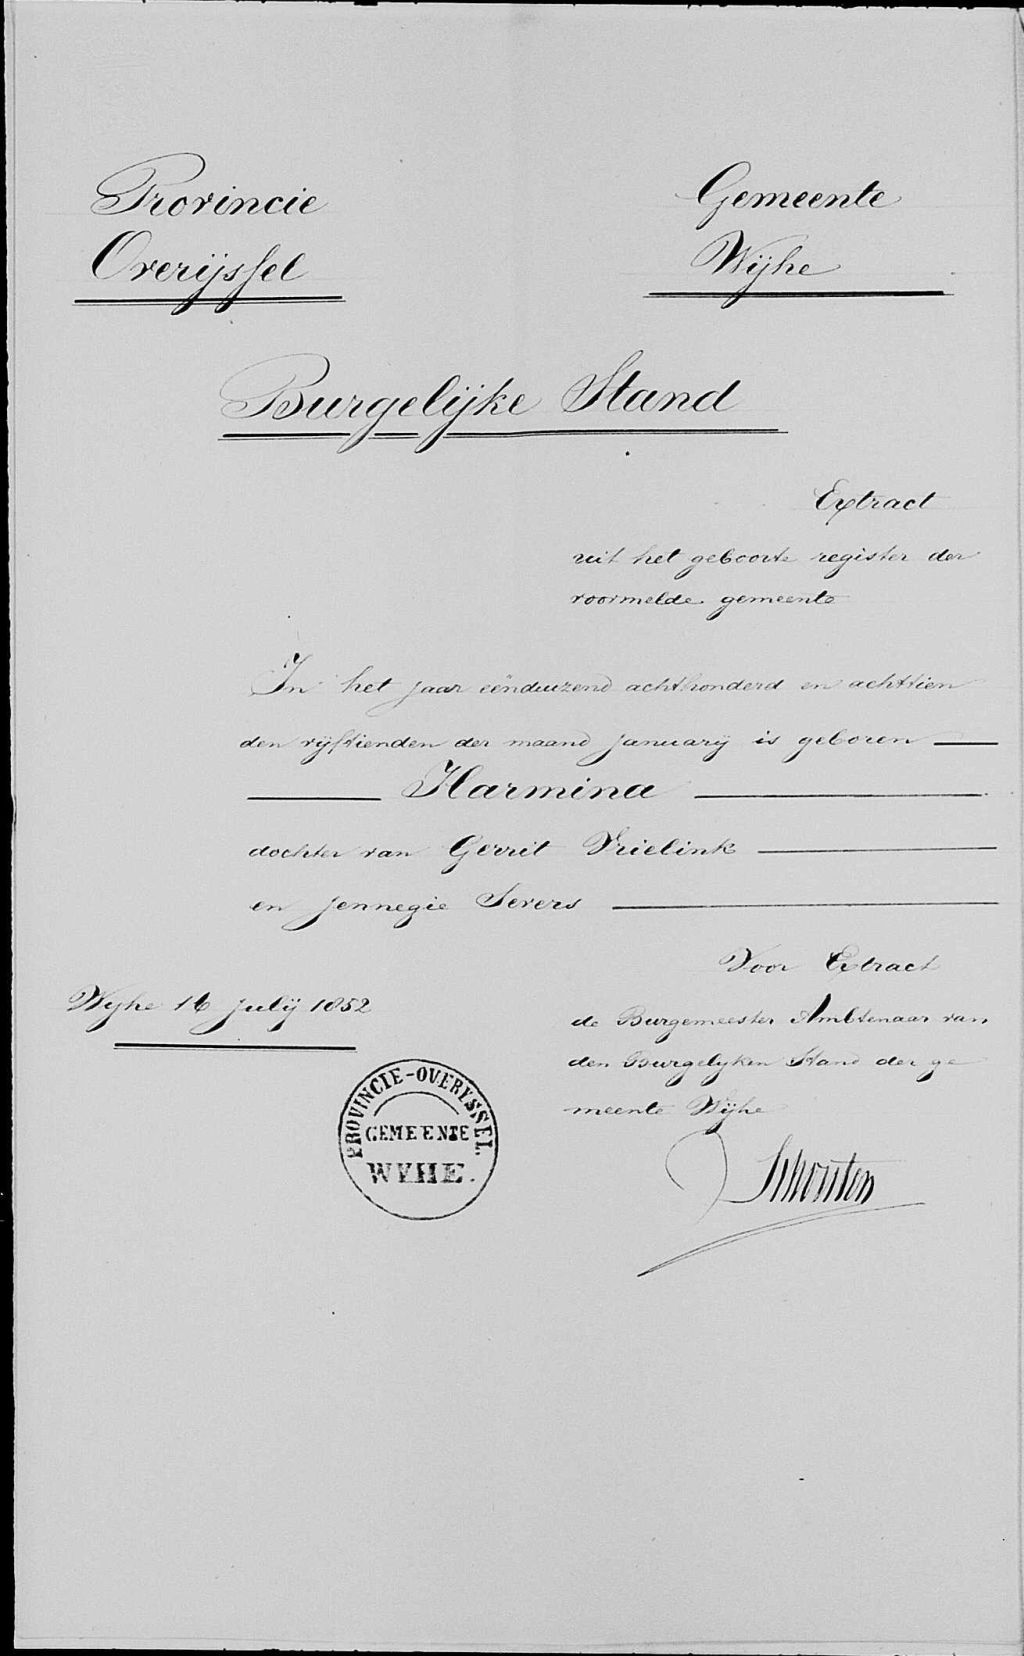 Provincie
Overijssel
Gemeente
Wijhe
Burgelijke Stand
Extract
uit het geboorte register der
voormelde gemeente
In het jaar eenduizend achthonderd en achttien
den vijftienden der maand January is geboren
Harmina
dochter van Gerrit Vrielink
en Jennegie Severs
Voor Extract
Wyhe 16 Julij 1852
de Burgemeester Ambtenaar van
den Burgelyken Stand der ge
meente Wijhe
PROVINCIE-OVERYSSEL.
GEMEENTE
WYHE.
Schouten